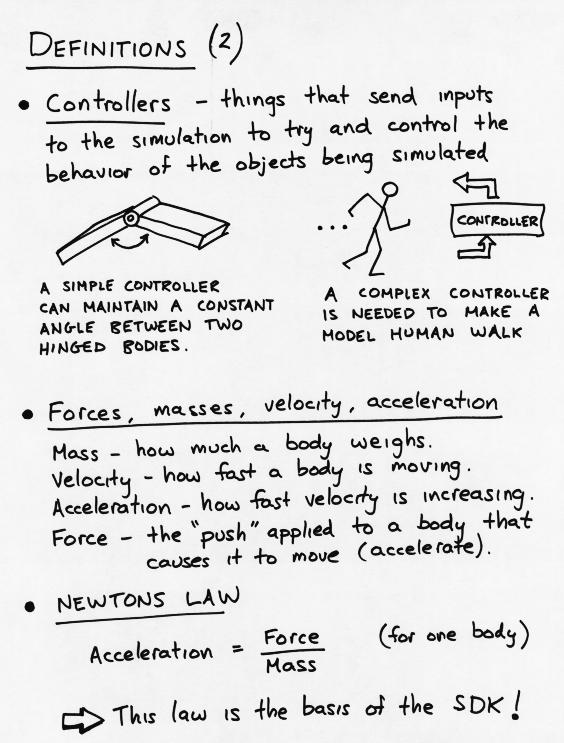 DEFINITIONS (2)
• Controllers - things that send inputs
to the simulation to try and control the
behavior of the objects being simulated
CONTROLLER
A SIMPLE CONTROLLER
CAN MAINTAIN A CONSTANT
ANGLE BETWEEN TWO
HINGED BODIES.
...
A COMPLEX CONTROLLER
IS NEEDED TO MAKE A
MODEL HUMAN WALK
• Forces, masses, velocity, acceleration
Mass - how much a body weighs.
Velocity - how fast a body is moving.
Acceleration - how fast velocity is increasing.
Force - the "push" applied to a body that
causes it to move (accelerate).
• NEWTONS LAW
Acceleration = Force / Mass (for one body)
⇨ This law is the basis of the SDK!